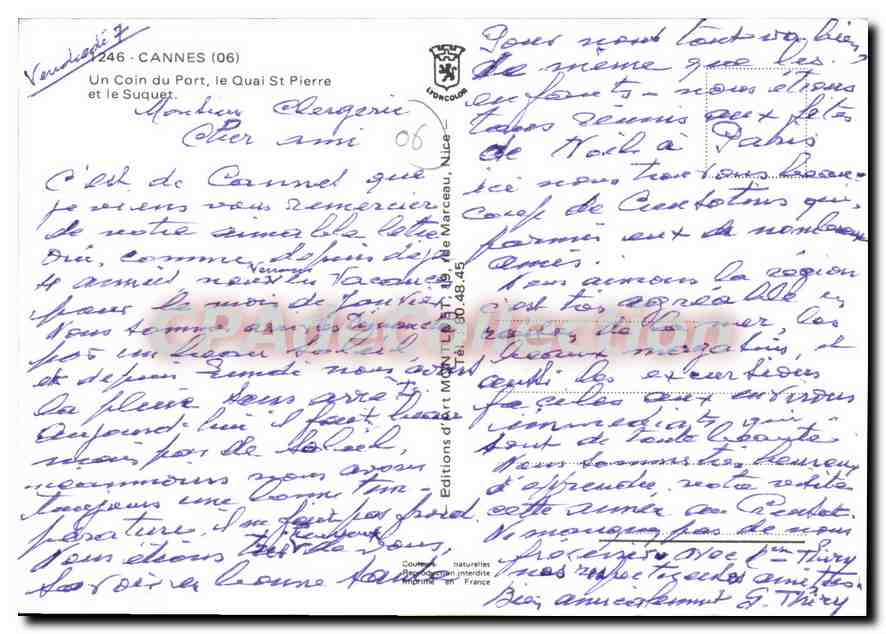 Vendredi 7
1246 - CANNES (06)
Un Coin du Port, le Quai St Pierre
et le Suquet.
LYONCOLOR
Monsieur Clergerie
Cher ami
06
C'est de Cannes que
je viens vous remercier
de votre aimable lettre
oui, comme depuis déjà
4 années nous venons en Vacances
pour le mois de Janvier
Nous sommes arrivés dimanche
par un beau soleil,
et depuis Lundi nous avons
la pluie sans arrêt
aujourd'hui il fait beau
mais pas de soleil,
néanmoins nous avons
toujours une bonne tem-
pérature, il ne fait pas froid.
Nous étions heureux de vous
savoir en bonne santé
Editions d'Art MONTLUET, 19, rue de Marceau, Nice
Tél. 80.48.45
Couleurs naturelles
Reproduction interdite
Imprimé en France
Pour nous tout va bien
de même que les
enfants - nous étions
tous réunis aux fêtes
de Noël à Paris
ici nous trouvons beau-
coup de qui,
parmis eux de nombreux
amis.
Nous aimons la région
c'est très agréable en
de la mer, les
beaux magasins, et
aussi les excursions
faciles aux environs
immédiats qui
sont de toute beauté
Nous sommes très heureux
d'apprendre votre visite
cette année au
Ne manquez pas de nous
avec Mme Thiry
nos respectueuses amitiés
Bien amicalement G. Thiry
CPAdeCollection